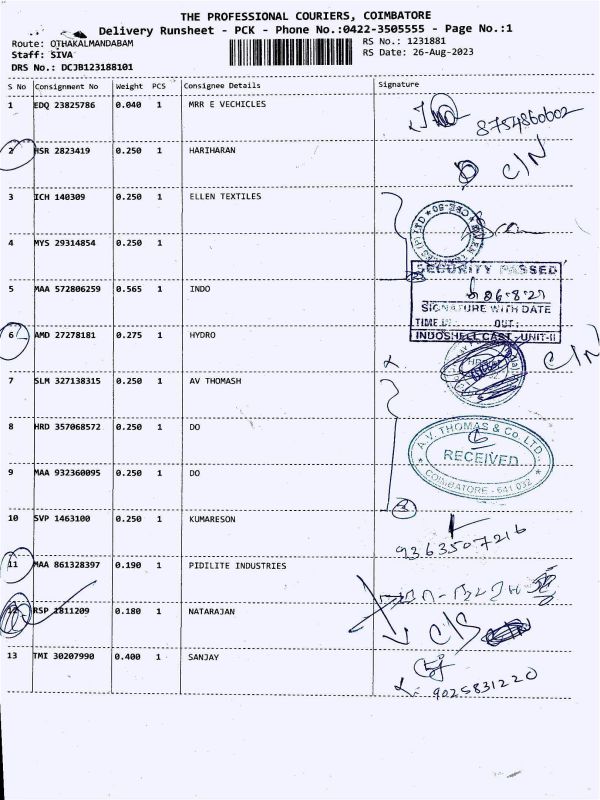 THE PROFESSIONAL COURIERS, COIMBATORE
Delivery Runsheet - PCK - Phone No.:0422-3505555 - Page No.:1
Route: OTHAKALMANDABAM RS No.: 1231881
Staff: SIVA RS Date: 26-Aug-2023
DRS No.: DCJB123188101
S No Consignment No Weight PCS Consignee Details Signature
1 EDQ 23825786 0.040 1 MRR E VECHICLES
8754860602
2 HSR 2823419 0.250 1 HARIHARAN C/N
3 ICH 140309 0.250 1 ELLEN TEXTILES
4 MYS 29314854 0.250 1
SECURITY PASSED
5 MAA 572806259 0.565 1 INDO
SIGNATURE WITH DATE
TIME IN: OUT:
6 AMD 27278181 0.275 1 HYDRO INDOSHELL CAST - UNIT-II
C/N
7 SLM 327138315 0.250 1 AV THOMASH
8 HRD 357068572 0.250 1 DO A.V. THOMAS & Co. LTD.,
RECEIVED
9 MAA 932360095 0.250 1 DO COIMBATORE - 641 032
10 SVP 1463100 0.250 1 KUMARESON
9363507216
11 MAA 861328397 0.190 1 PIDILITE INDUSTRIES
12 RSP 1811209 0.180 1 NATARAJAN C/S
13 TMI 30207990 0.400 1 SANJAY
9025831220